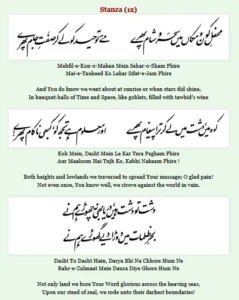 Stanza (12)
محفل کون و مکاں میں سحر و شام پھرے
مے توحید کو لے کر صفت جام پھرے
Mehfil-e-Kon-o-Makan Mein Sehar-o-Sham Phire
Mai-e-Tauheed Ko Lekar Sifat-e-Jam Phire
And You do know we went about at sunrise or when stars did shine,
In banquet-halls of Time and Space, like goblets, filled with tawhid's wine
کوہ میں دشت میں لے کر ترا پیغام پھرے
اور معلوم ہے تجھ کو کبھی ناکام پھرے
Koh Mein, Dasht Mein Le Kar Tera Pegham Phire
Aur Maaloom Hai Tujh Ko, Kabhi Nakaam Phire !
Both heights and lowlands we traversed to spread Your message; O glad pain!
Not even once, You know well, we strove against the world in vain.
دشت تو دشت ہیں دریا بھی نہ چھوڑے ہم نے
بحر ظلمات میں دوڑا دیے گھوڑے ہم نے
Dasht To Dasht Hain, Darya Bhi Na Chhore Hum Ne
Bahr-e-Zulmaat Mein Daura Diye Ghore Hum Ne
Not only land we bore Your Word glorious across the heaving seas,
Upon our steed of zeal, we rode unto their darkest boundaries!